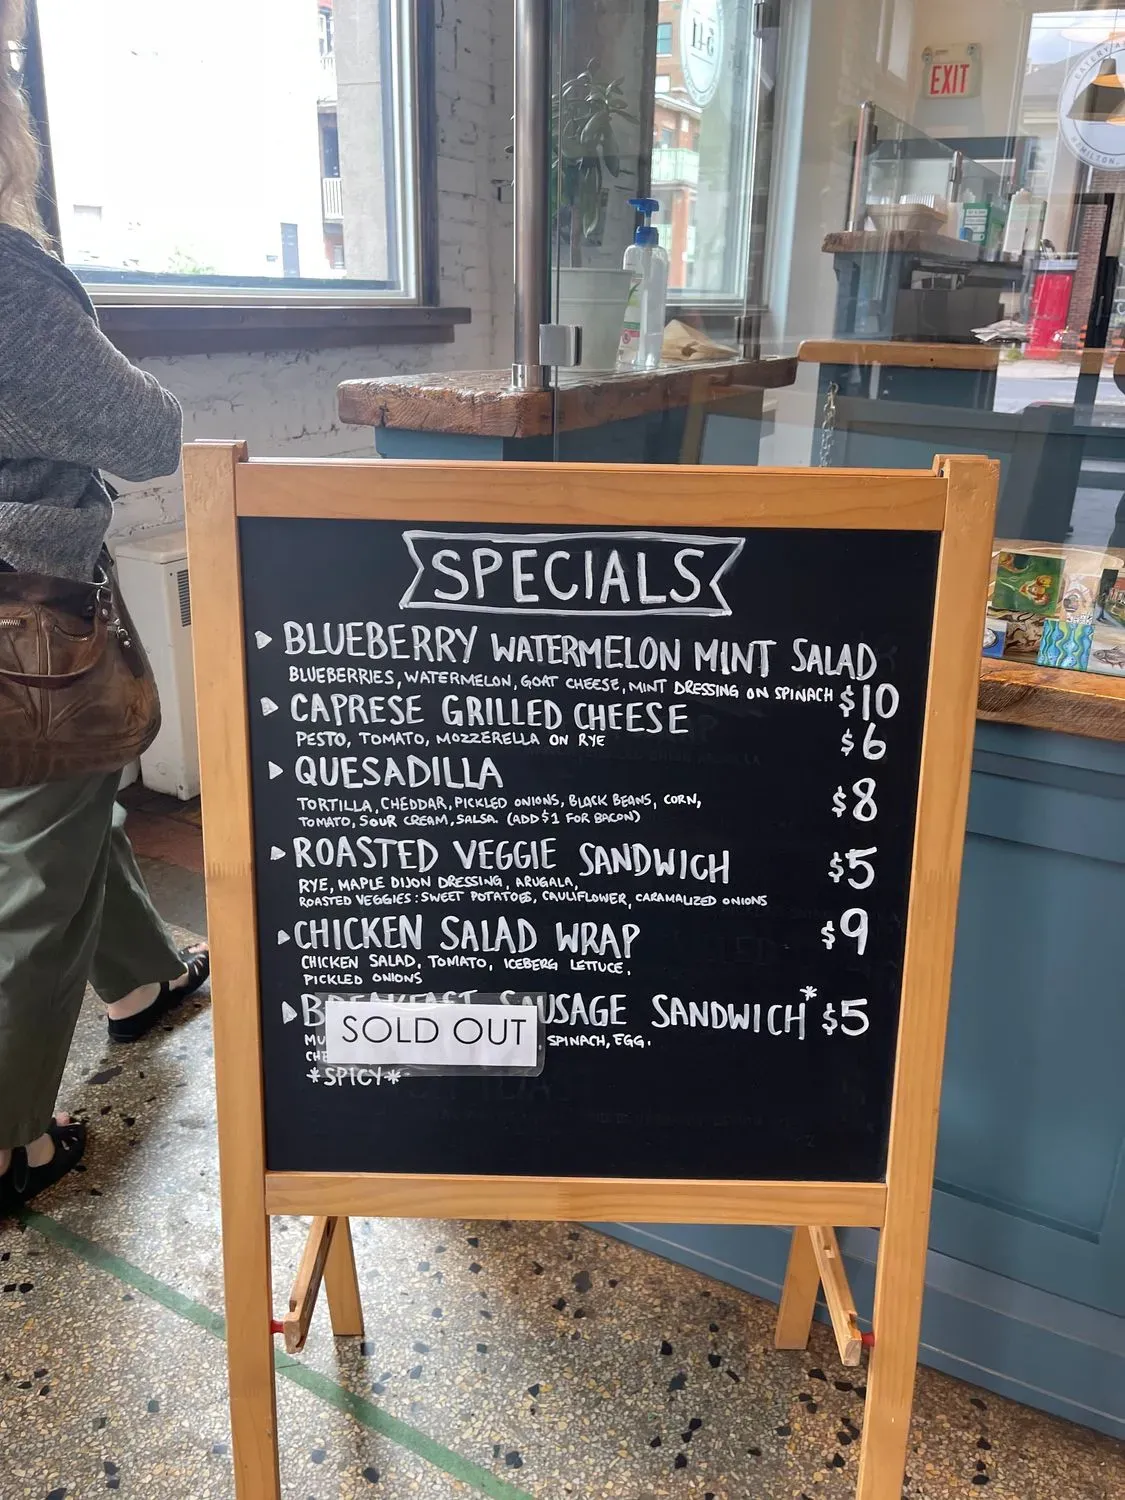 EXIT
SPECIALS
BLUEBERRY WATERMELON MINT SALAD
BLUEBERRIES, WATERMELON, GOAT CHEESE, MINT DRESSING ON SPINACH $10
CAPRESE GRILLED CHEESE
PESTO, TOMATO, MOZZERELLA ON RYE $6
QUESADILLA
TORTILLA, CHEDDAR, PICKLED ONIONS, BLACK BEANS, CORN, $8
TOMATO, SOUR CREAM, SALSA. (ADD $1 FOR BACON)
ROASTED VEGGIE SANDWICH $5
RYE, MAPLE DIJON DRESSING, ARUGALA,
ROASTED VEGGIES: SWEET POTATOES, CAULIFLOWER, CARAMALIZED ONIONS
CHICKEN SALAD WRAP $9
CHICKEN SALAD, TOMATO, ICEBERG LETTUCE,
PICKLED ONIONS
SANDWICH* $5
SOLD OUT
SPINACH, EGG.
*SPICY*